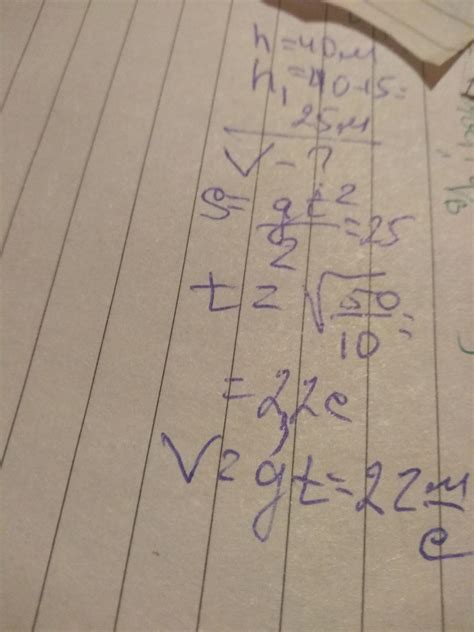 h=40м
h₁=40-15=
25м
V-?
S=gt²/2=25
t=√50/10=
=2,2с
V=gt=22м/с